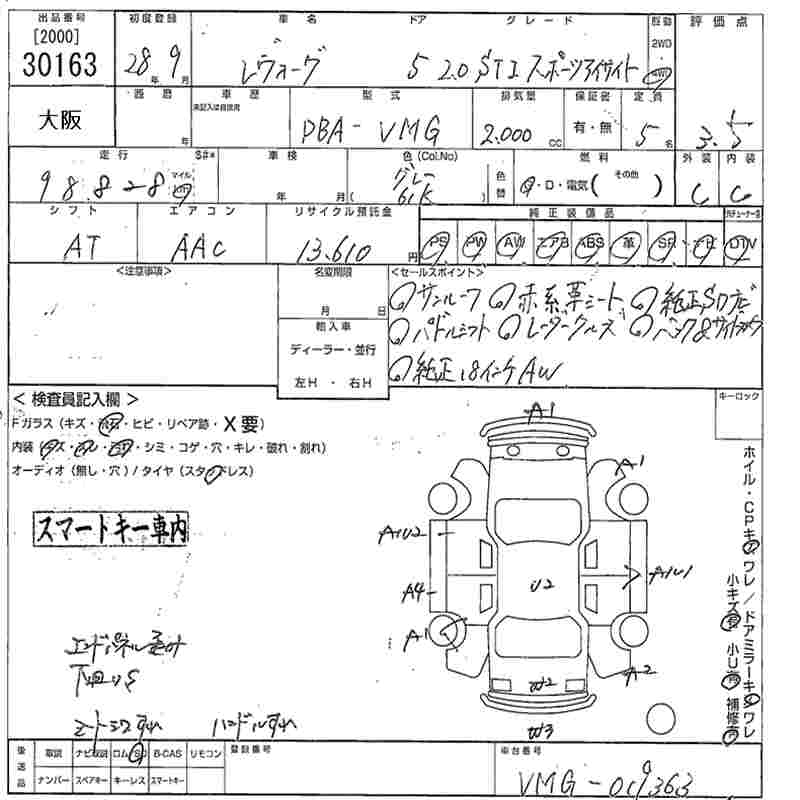 出品番号 初度登録 車名 ドア グレード 駆動 評価点
[2000]
30163 28年 9月 レヴォーグ 5 2.0 STI スポーツアイサイト 2WD 4WD 3.5
西暦 年 車歴 未記入は自家用 型式 排気量 保証書 定員
大阪 DBA-VMG 2.000 cc 有・無 5名
走行 S#* 車検 色(Col.No) 燃料 外装 内装
98.828 マイル 年 月 グレー 61K 色替 ・D・電気( その他 ) C C
シフト エアコン リサイクル預託金 純正装備品
AT AAC 13.610円 PS PW AW エアB ABS 革 SR ナビ DTV
<注意事項> 名変期限 <セールスポイント>
月 日 サンルーフ 赤系革シート 純正SDナビ
輸入車 パドルシフト レーダークルーズ バック&サイトカメラ
ディーラー・並行
左H ・ 右H 純正18インチAW
< 検査員記入欄 > キーロック
Fガラス (キズ・飛石・ヒビ・リペア跡・X要)
内装 (キズ・・・シミ・コゲ・穴・キレ・破れ・割れ)
オーディオ (無し・穴) / タイヤ (スタッドレス)
スマートキー車内
A1
A1
A1U2
A1U1
U2
A4
A1
A2
W2
W3
ホイル・CPキズワレ / ドアミラーキズワレ
小キズ有 小U有 補修有
エンドパネル歪み
下廻りS
シートシワすれ ハンドルすれ
後送品 取説 ナビ取説 ロム/SD B-CAS リモコン 登録番号 車台番号
ナンバー スペアキー キーレス スマートキー VMG-019363